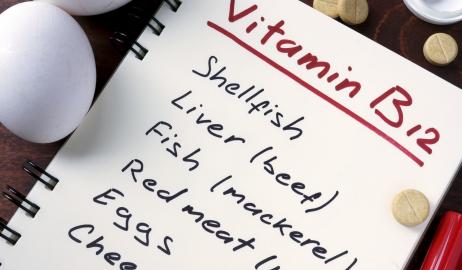 Vitamin B12
Shellfish
Liver (beef)
Fish (mackerel)
Red meat (
Eggs
Chee